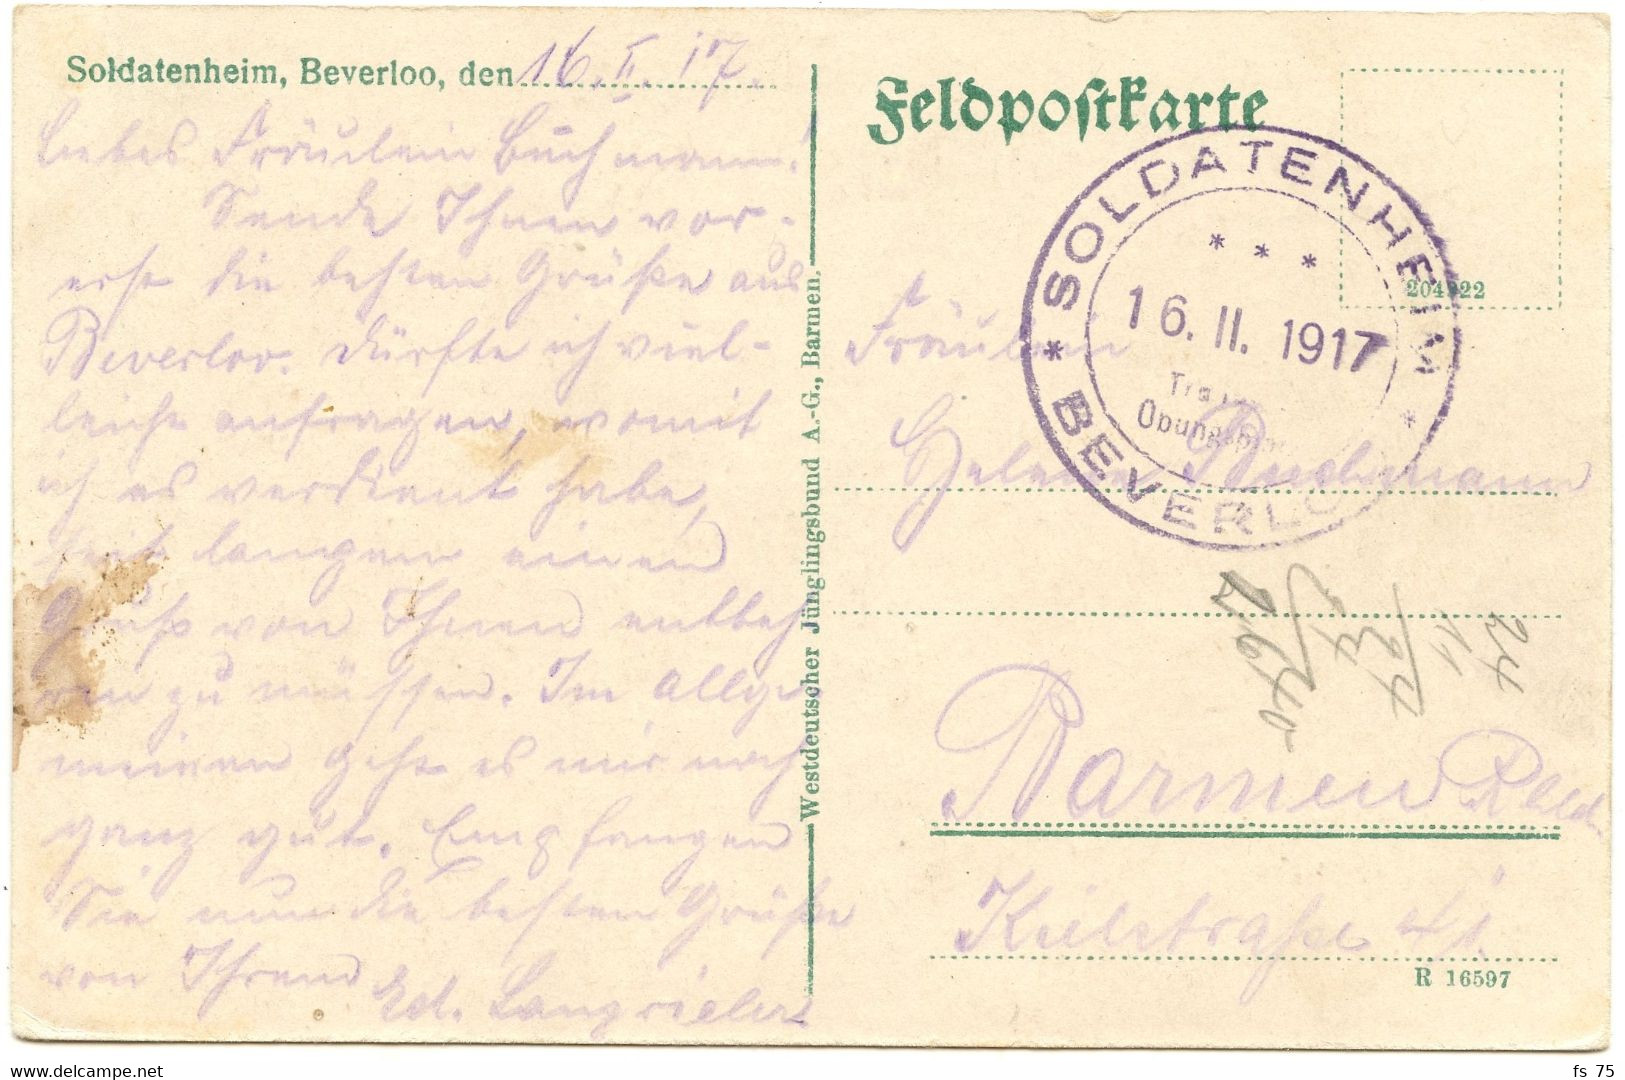 Soldatenheim, Beverloo, den 16. II. 17.
Liebes Fräulein Buchmann!
Sende Ihnen vor-
erst die besten Grüße aus
Beverloo. Dürfte ich viel-
leicht anfragen, womit
ich es verdient habe,
seit langem einen
Gruß von Ihnen entbeh
ren zu müssen. Im Allge
meinen geht es mir noch
ganz gut. Empfangen
Sie nun die besten Grüße
von Ihrem
Ed.
Westdeutscher Jünglingsbund A.-G., Barmen.
Feldpostkarte
204922
* SOLDATENHEIM *
BEVERLO
* * *
16. II. 1917
Fräulein
Helene Buchmann
Barmen
Kielstraße 41.
R 16597
24
11
fs 75